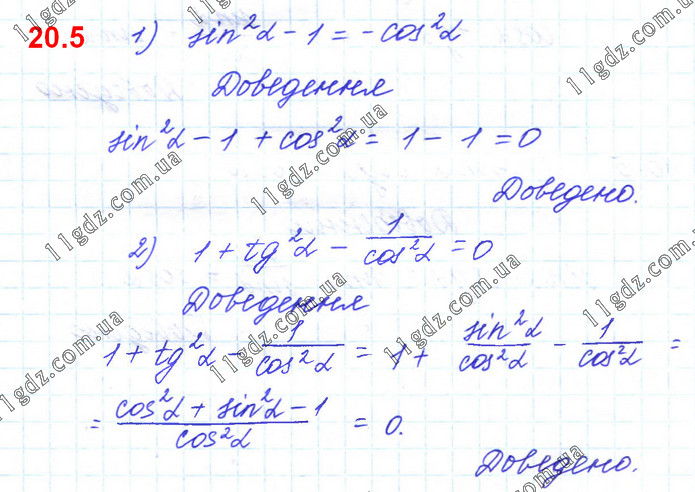 20.5
1) sin²α - 1 = -cos²α
Доведення
sin²α - 1 + cos²α = 1 - 1 = 0
Доведено.
2) 1 + tg²α - 1/cos²α = 0
Доведення
1 + tg²α - 1/cos²α = 1 + sin²α/cos²α - 1/cos²α =
= (cos²α + sin²α - 1)/cos²α = 0.
Доведено.
11gdz.com.ua
11gdz.com.ua
11gdz.com.ua
11gdz.com.ua
11gdz.com.ua
11gdz.com.ua
11gdz.com.ua
11gdz.com.ua